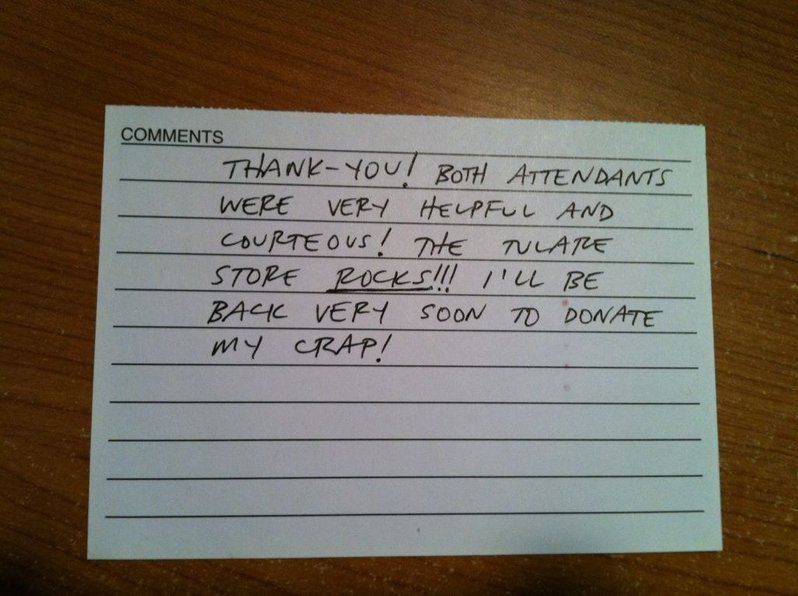 COMMENTS
THANK-YOU! BOTH ATTENDANTS
WERE VERY HELPFUL AND
COURTEOUS! THE TULARE
STORE ROCKS!!! I'LL BE
BACK VERY SOON TO DONATE
MY CRAP!